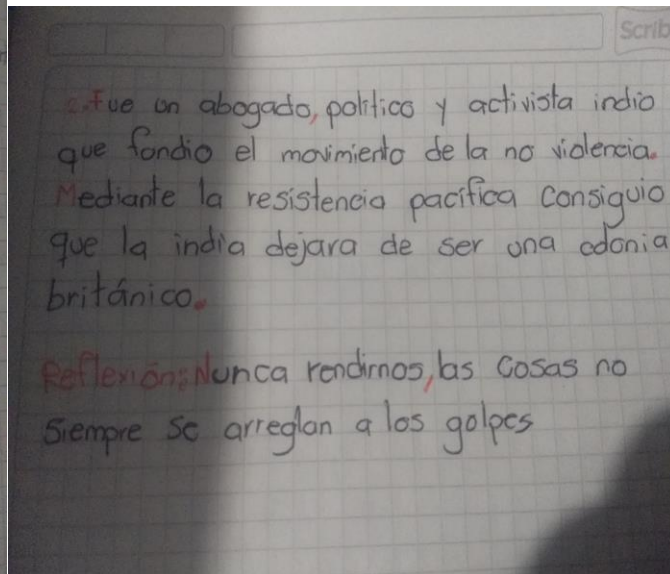 Scrib
2. Fue un abogado, politico y activista indio
que fundio el movimiento de la no violencia.
Mediante la resistencia pacifica consiguio
que la india dejara de ser una colonia
británico.
Reflexión: Nunca rendirnos, las cosas no
siempre se arreglan a los golpes